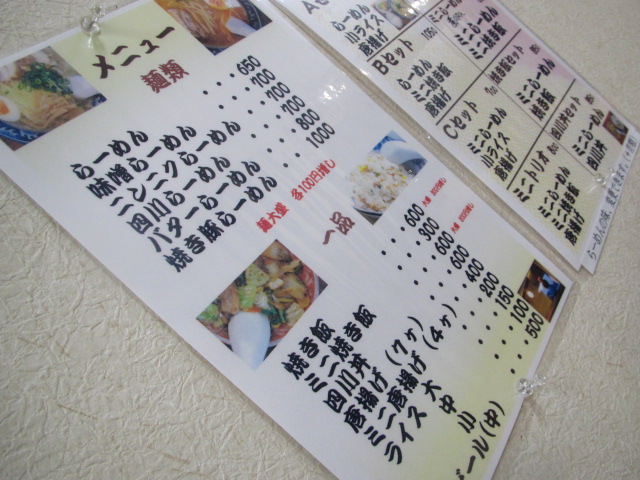 メニュー
麺類
らーめん ・・・650
味噌らーめん ・・・700
ニンニクらーめん ・・・700
四川らーめん ・・・700
バターらーめん ・・・800
焼き豚らーめん ・・・1000
麺大盛 各100円増し
一品
焼き飯 ・・・600
ミニ焼き飯 ・・・300
四川丼 ・・・600
唐揚げ(7ヶ) ・・・600
ミニ唐揚げ(4ヶ) ・・・400
ライス 大 ・・・200
中 ・・・150
小 ・・・100
ビール(中) ・・・500
らーめん
小ライス
唐揚げ
Bセット
らーめん
ミニ焼き飯
唐揚げ
Cセット
ミニらーめん
小ライス
唐揚げ
ミニらーめん
ミニ焼き飯
焼き飯セット
ミニらーめん
焼き飯
四川丼セット
ミニらーめん
四川丼
ミニトリオ
ミニらーめん
ミニ焼き飯
唐揚げ